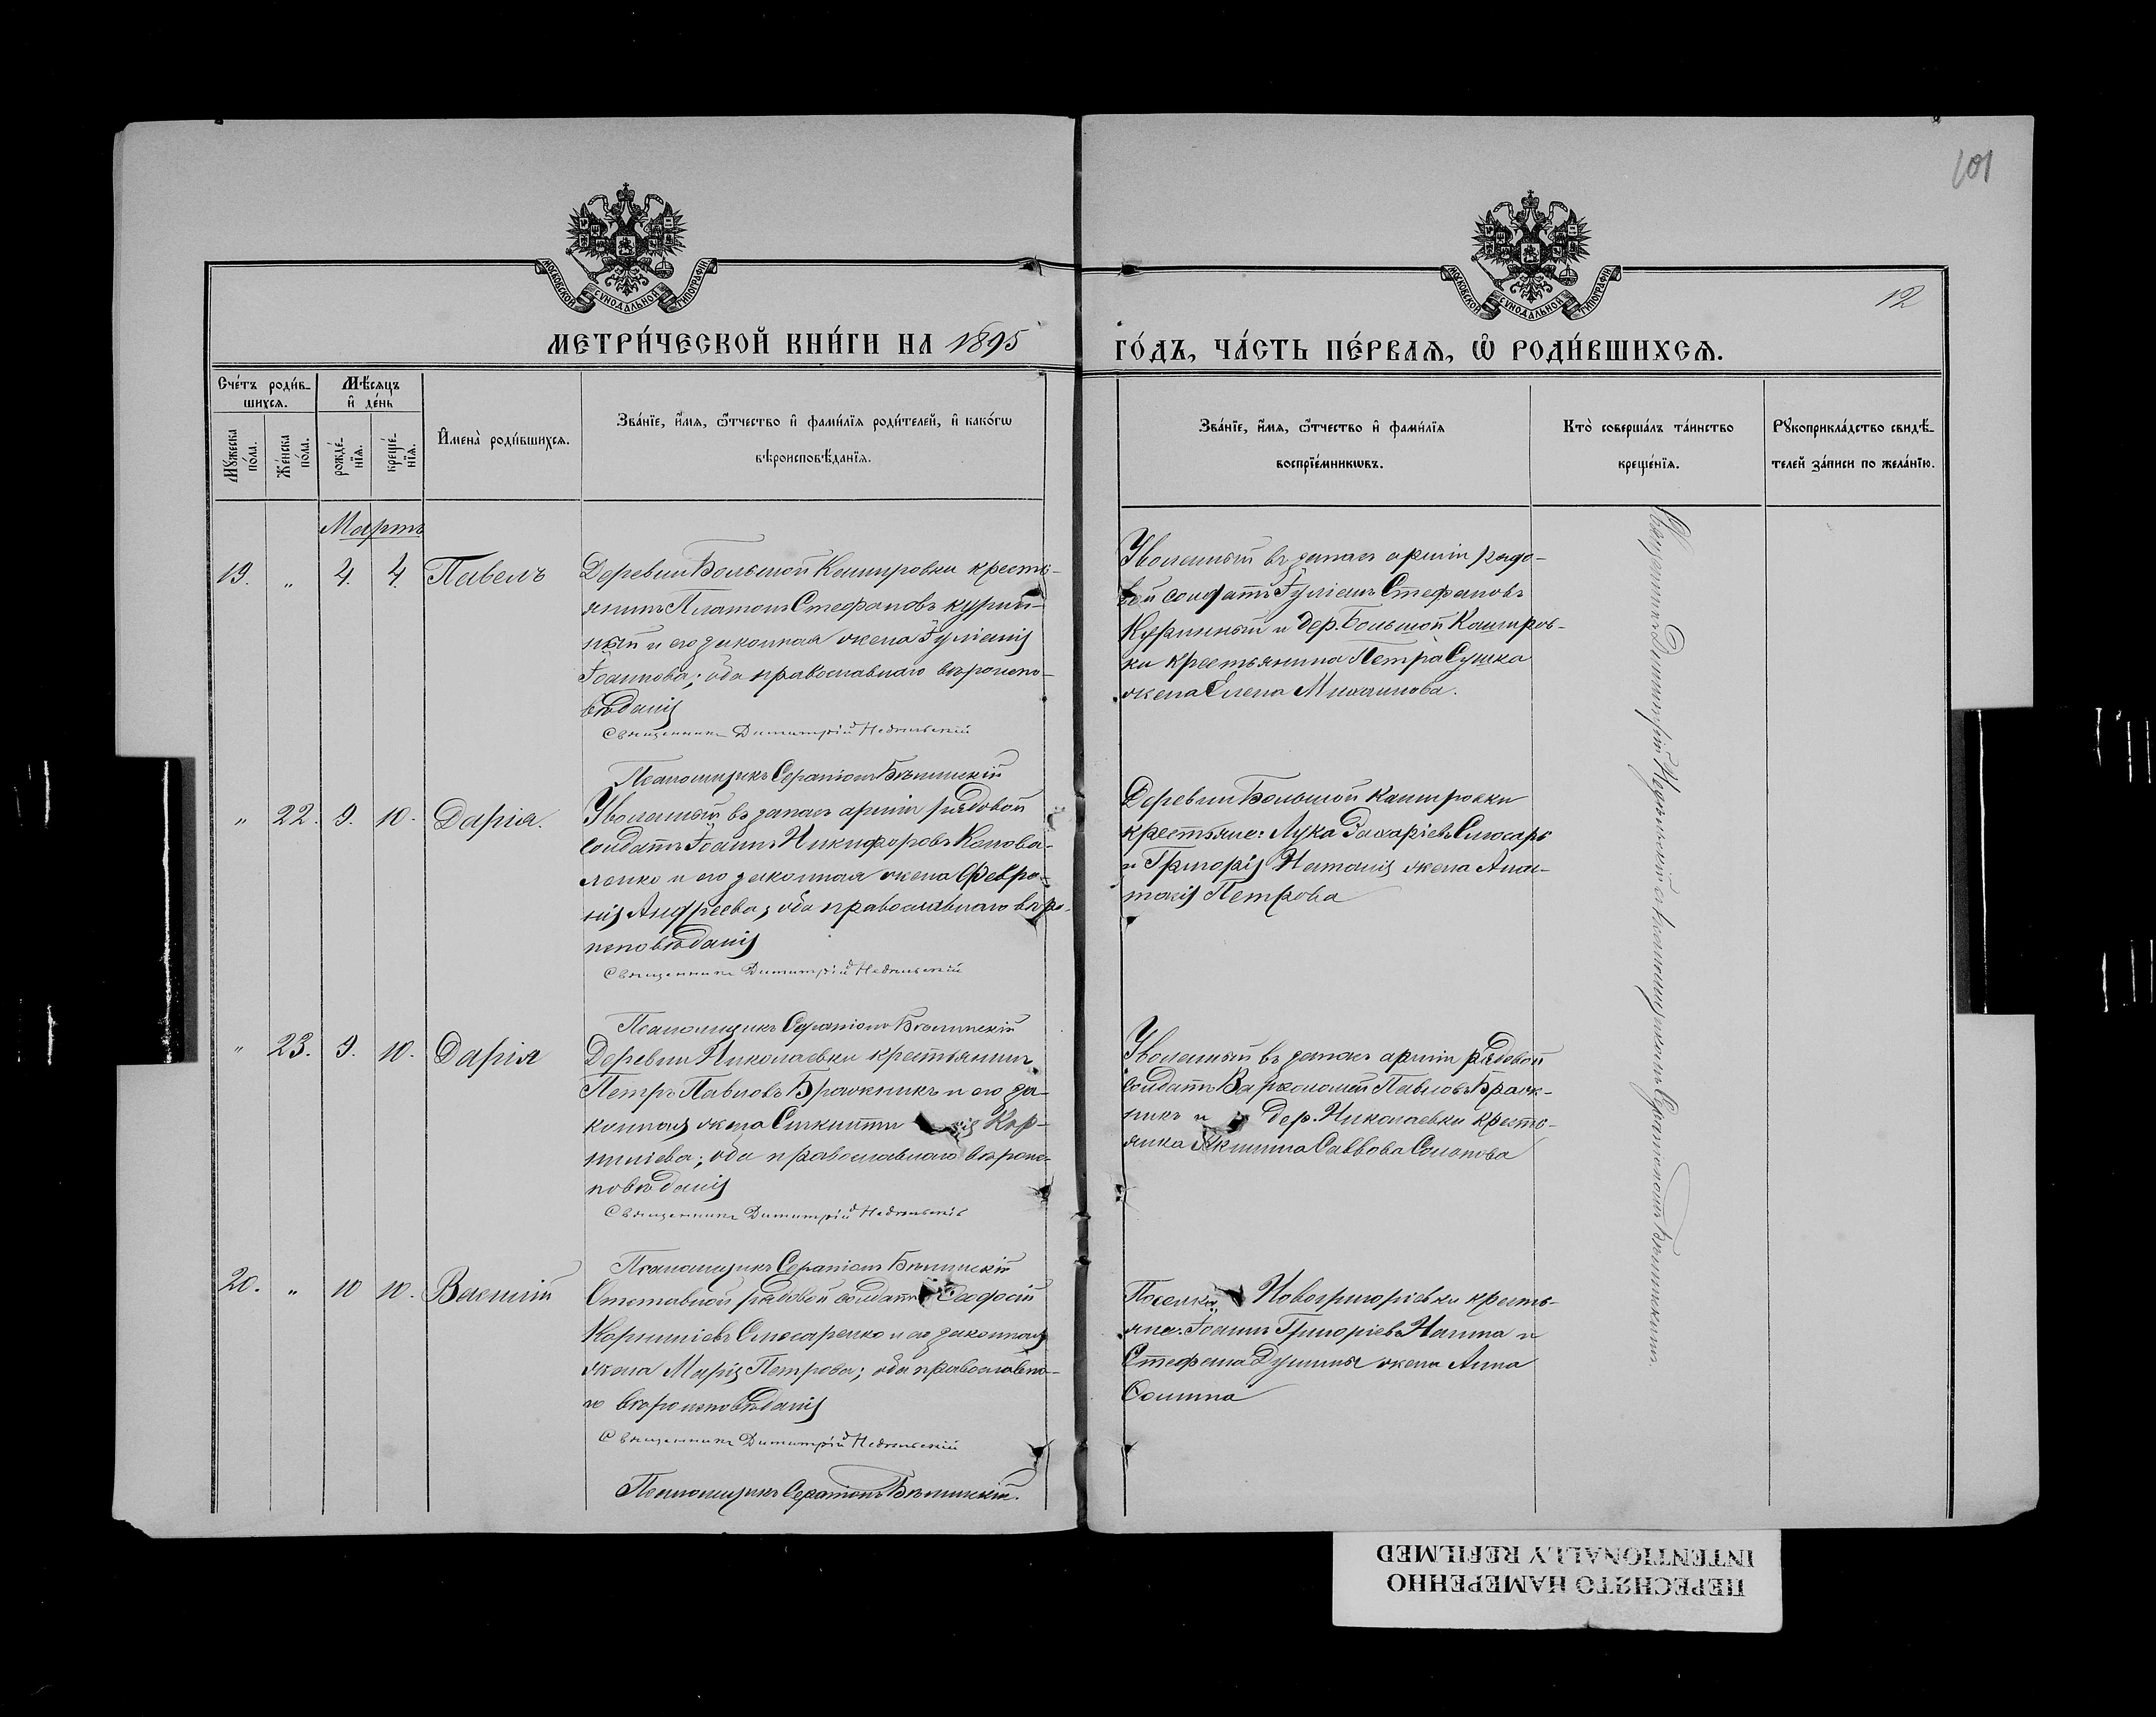 101
МОСКОВСКОЙ СѴНОДАЛЬНОЙ ТИПОГРАФІИ
МОСКОВСКОЙ СѴНОДАЛЬНОЙ ТИПОГРАФІИ
12
МЕТРИ́ЧЕСКОЙ КНИ́ГИ НА 1895
ГО́ДЪ, ЧА́СТЬ ПЕ́РВАѦ, Ѡ҆ РОДИ́ВШИХСѦ.
Сче́тъ роди́в-
шихсѧ.
Мѣ́сѧцъ
и҆ де́нь
Мꙋ́жеска
по́ла.
Же́нска
по́ла.
рожде́-
нїѧ.
креще́-
нїѧ.
И҆мена̀ роди́вшихсѧ.
Зва́нїе, и҆́мѧ, ѻ҆́тчество и҆ фами́лїѧ роди́телей, и҆ како́гѡ
вѣроисповѣ́данїѧ.
Зва́нїе, и҆́мѧ, ѻ҆́тчество и҆ фами́лїѧ
воспрїе́мникѡвъ.
Кто̀ соверша́лъ та́инство
креще́нїѧ.
Рꙋкоприкла́дство свидѣ́-
телей за́писи по жела́нїю.
Мартъ
19. " 4. 4. Павелъ
Деревни Большой Кашировки кресть-
янинъ Платонъ Стефановъ Курин-
ный и его законная жена Іуліанія
Іоаннова; оба православнаго вѣроиспо-
вѣданія
Священникъ Димитрій Недѣльскій
Псаломщикъ Серапіонъ Бѣлинскій
Уволенный въ запасъ арміи рядо-
вой солдатъ Іуліанъ Стефановъ
Куринный и дер. Большой Каширов-
ки крестьянина Петра Сушка
жена Елена Михаилова.
" 22. 9. 10. Дарія.
Уволенный въ запасъ арміи рядовой
солдатъ Іоаннъ Никифоровъ Конова-
ленко и его законная жена Февро-
нія Андреева; оба православнаго вѣро-
исповѣданія
Священникъ Димитрій Недѣльскій
Псаломщикъ Серапіонъ Бѣлинскій
Деревни Большой Кашировки
крестьяне: Лука Захаріевъ Слюсарь
и Григорія жена Анас-
тасія Петрова
" 23. 9. 10. Дарія
Деревни Николаевки крестьянинъ
Петръ Павловъ Бражникъ и его за-
конная жена Кор-
ниліева; оба православнаго вѣроис-
повѣданія
Священникъ Димитрій Недѣльскій
Псаломщикъ Серапіонъ Бѣлинскій
Уволенный въ запасъ арміи рядовой
солдатъ Варѳоломей Павловъ Браж-
никъ и дер. Николаевки кресть-
янка Акилина Саввова
20. " 10 10. Василій
Отставной рядовой солдатъ
Корниліевъ Слюсаренко и его законная
жена Марія Петрова; оба православна-
го вѣроисповѣданія
Священникъ Димитрій Недѣльскій
Псаломщикъ Серапіонъ Бѣлинскій.
Поселка Новогригоріевки кресть-
яне: Іоаннъ Григоріевъ и
Стефана жена Анна
Священникъ Димитрій Недѣльскій съ псаломщикомъ Серапіономъ Бѣлинскимъ.
ПЕРЕСНЯТО НАМЕРЕННО
INTENTIONALLY REFILMED